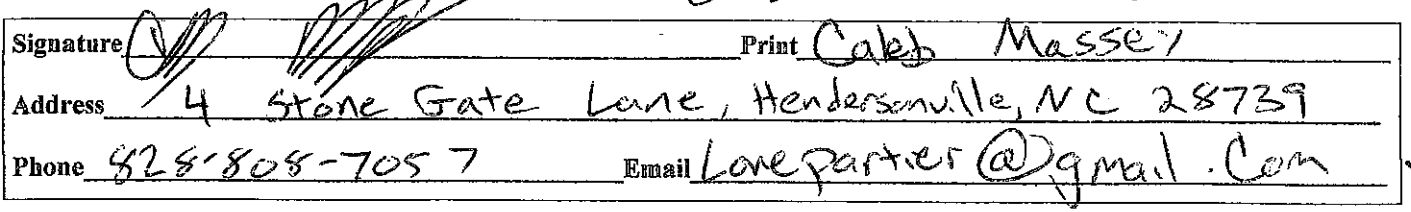 Signature Print Caleb Massey
Address 4 Stone Gate Lane, Hendersonville, NC 28739
Phone 828-808-7057 Email Lonepartier@gmail.com